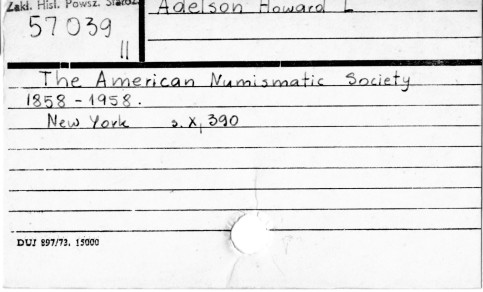 Zakł. Hist. Powsz. Staroż.
57039
II
Adelson Howard L
The American Numismatic Society
1858 - 1958.
New York s. X, 390
DUJ 897/73. 15000